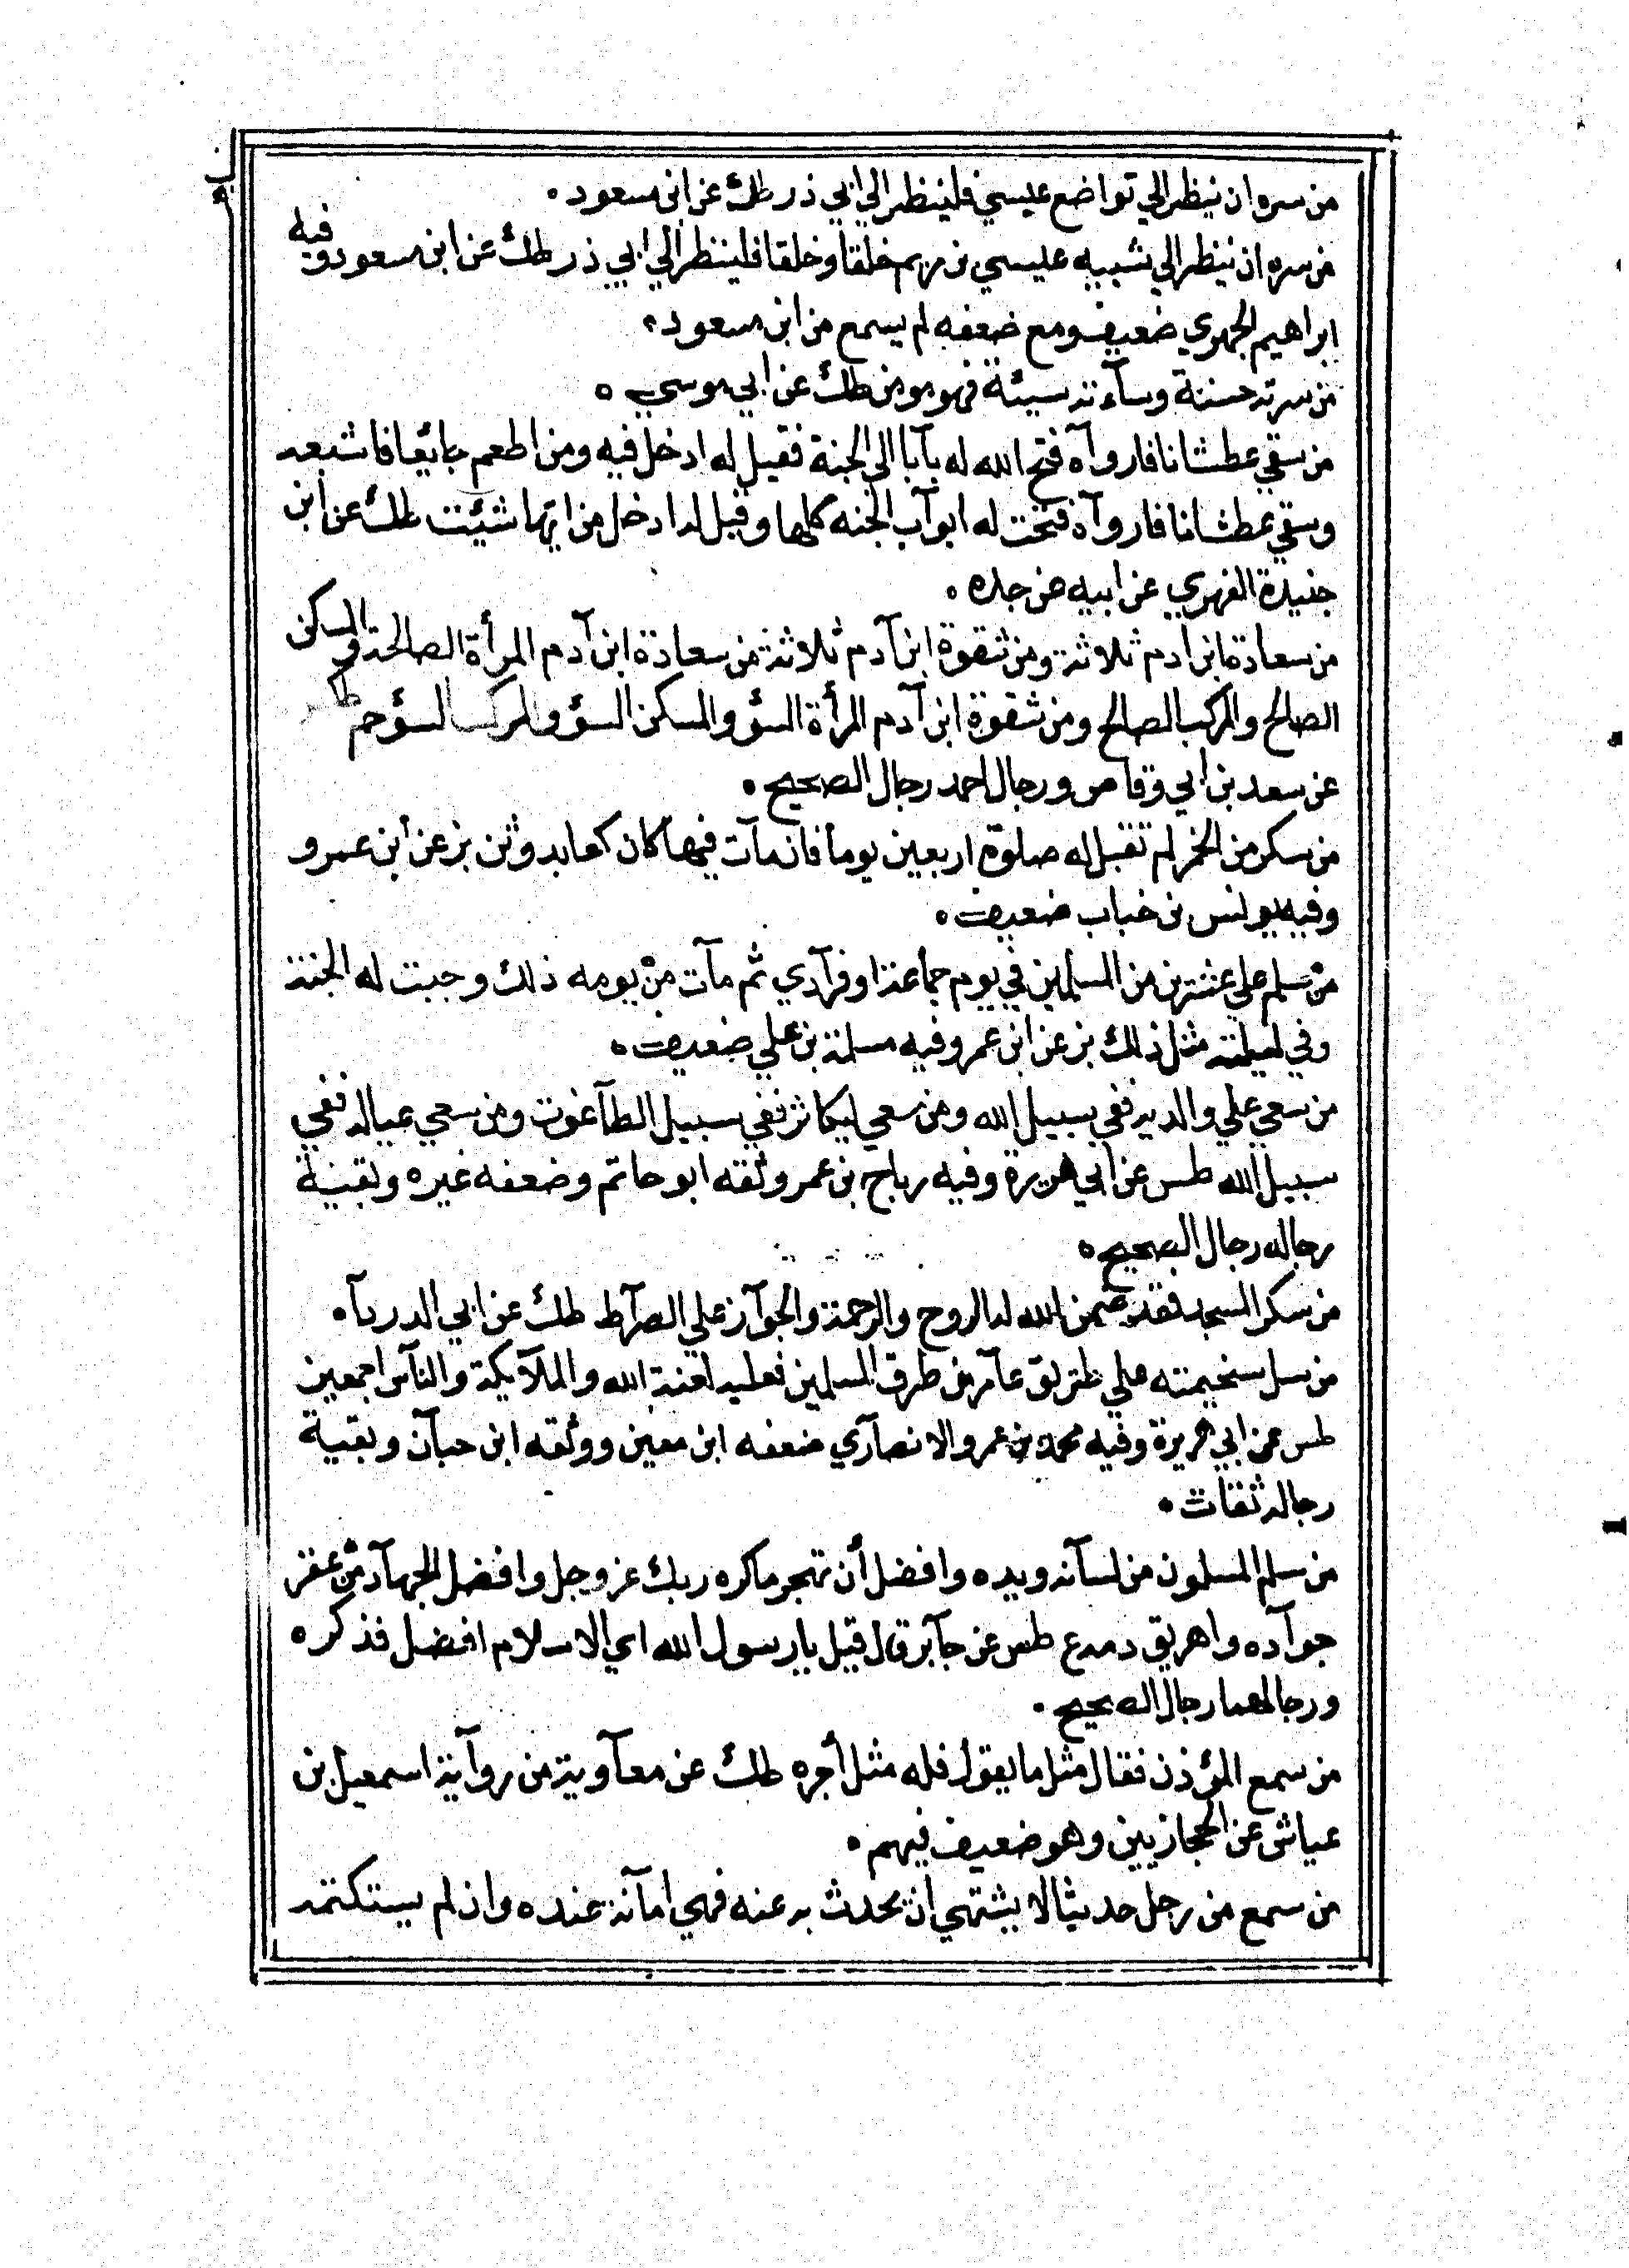 من سره ان ينظر الي تواضع عيسي فلينظر الي ابي ذر طك عن ابن مسعود ه
من سره ان ينظر الي شبيه عليسي بن مريم خلقا وخلقا فلينظر الي ابي ذر طك عن ابن مسعود وفيه
ابراهيم الجهري ضعيف ومع ضعفه لم يسمع من ابن مسعود ه
من سرته حسنة وسآءته سيئة فهو مومن طك عن ابي موسي ه
من سقي عطشانا فاروآه فتح الله له بآبا الي الجنة فقيل له ادخل فيه ومن اطعم جايعا فاشبعه
وسقي عطشانا فاروآه فتحت له ابوآب الجنه كلها وقيل له ادخل من ايها شيئت طك عن ابن
جنيدة الفهري عن ابيه عن جده ه
من سعادة ابن ادم ثلاثة ومن شقوة ابن آدم ثلاثة من سعادة ابن آدم المرأة الصالحة والمسكن
الصالح والمركب الصالح ومن شقوة ابن آدم المرأة السؤ والمسكن السؤ والمركب السؤ حم
عن سعد بن ابي وقاص ورجال احمد رجال الصحيح ه
من سكر من الخمر لم تقبل له صلوة اربعين يوما فان مآت فيها كان كعابد وثن بز عن ابن عمرو
وفيه يونس بن خباب ضعيف ه
من سلم علي عشرين من المسلمين في يوم جمأعة او فرآدي ثم مآت من يومه ذلك وجبت له الجنة
وفي ليلته مثل ذلك بز عن ابن عمر وفيه مسلمة بن علي ضعيف ه
من سعي علي والديه ففي سبيل الله ومن سعي ليكاثر ففي سبيل الطآغوت ومن سعي عياله ففي
سبيل الله طس عن ابي هريرة وفيه رباح بن عمر وثقه ابو حاتم وضعفه غيره وبقية
رجاله رجال الصحيح ه
من سكر المسجد فقد ضمن الله له الروح والرحمة والجوآز علي الصرآط طك عن ابي الدردآه
من سل سخيمته علي طريق عآمر من طرق المسلمين فعليه لعنة الله والملآيكة والنآس اجمعين
طس عن ابي هريرة وفيه محمد بن عمرو الانصآري ضعفه ابن معين ووثقه ابن حبآن وبقية
رجاله ثقات ه
من سلم المسلمون من لسآنه ويده وافضل أن تهجر ما كره ربك عز وجل وافضل الجهآد من عقر
جوآده واهريق دمه ع طس عن جآبر قال قيل يا رسول الله اي الاسلام افضل فذكره
ورجالهما رجال الصحيح ه
من سمع المؤذن فقال مثل ما يقول فله مثل أجره طك عن معآوية من روآية اسمعيل بن
عياش عن الحجازيين وهو ضعيف فيهم ه
من سمع من رجل حديثا لا يشتهي ان يحدث به عنه فهي امآنة عنده وان لم يستكتمه